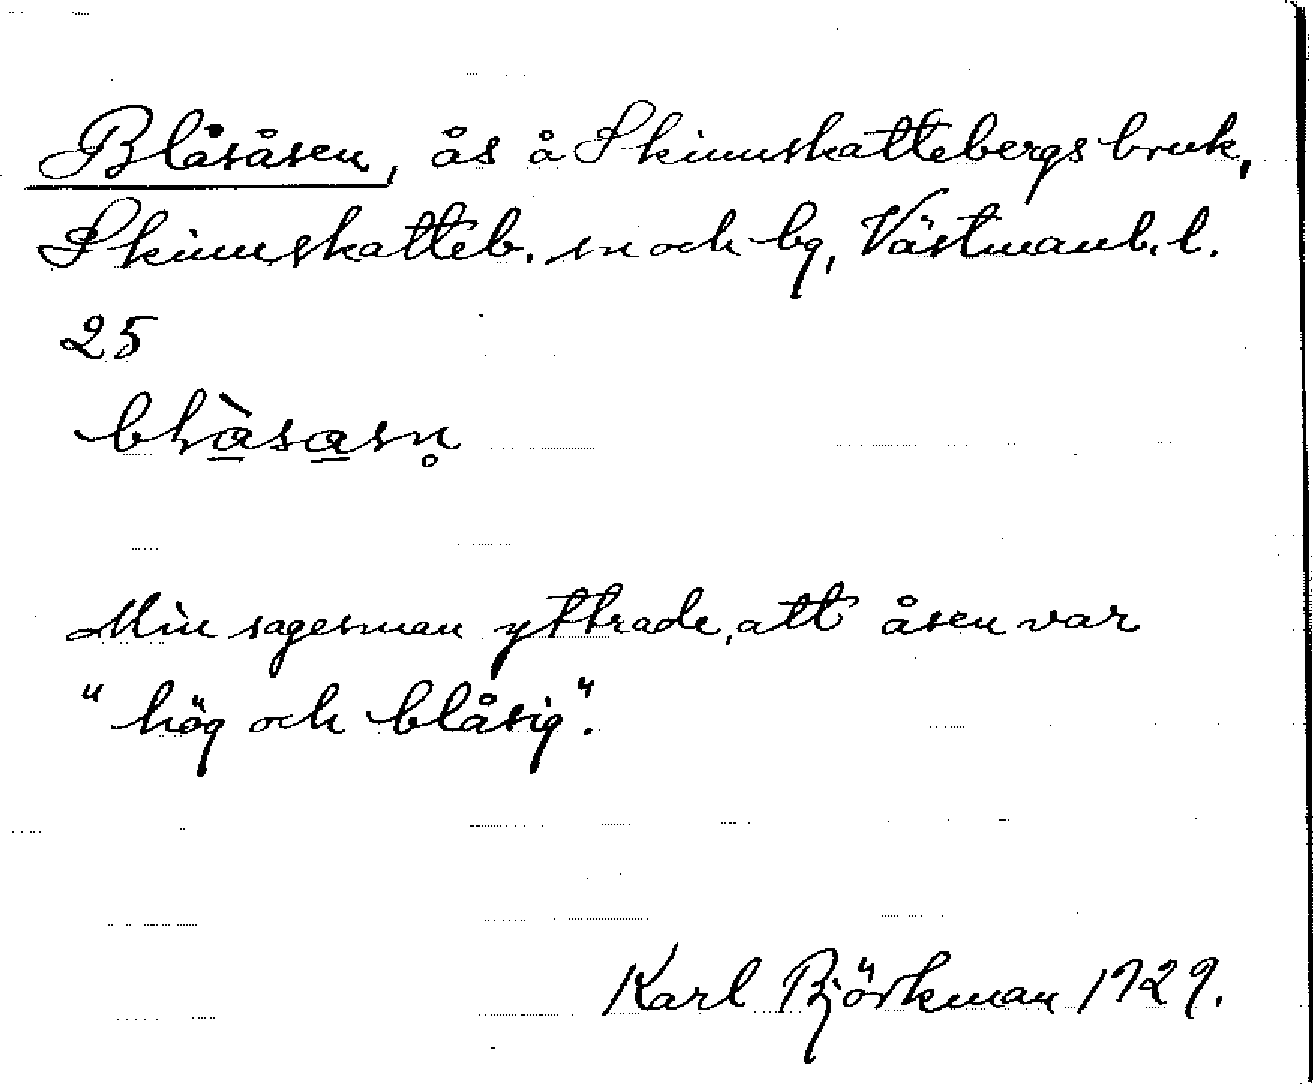 Blåsåsen, ås å Skinnskattebergs bruk,
Skinnskatteb. sn och bg, Västmanl. l.
25
blὰ̱sa̱sn̥
Min sagesman yttrade, att åsen var
"hög och blåsig".
Karl Björkman 1929.